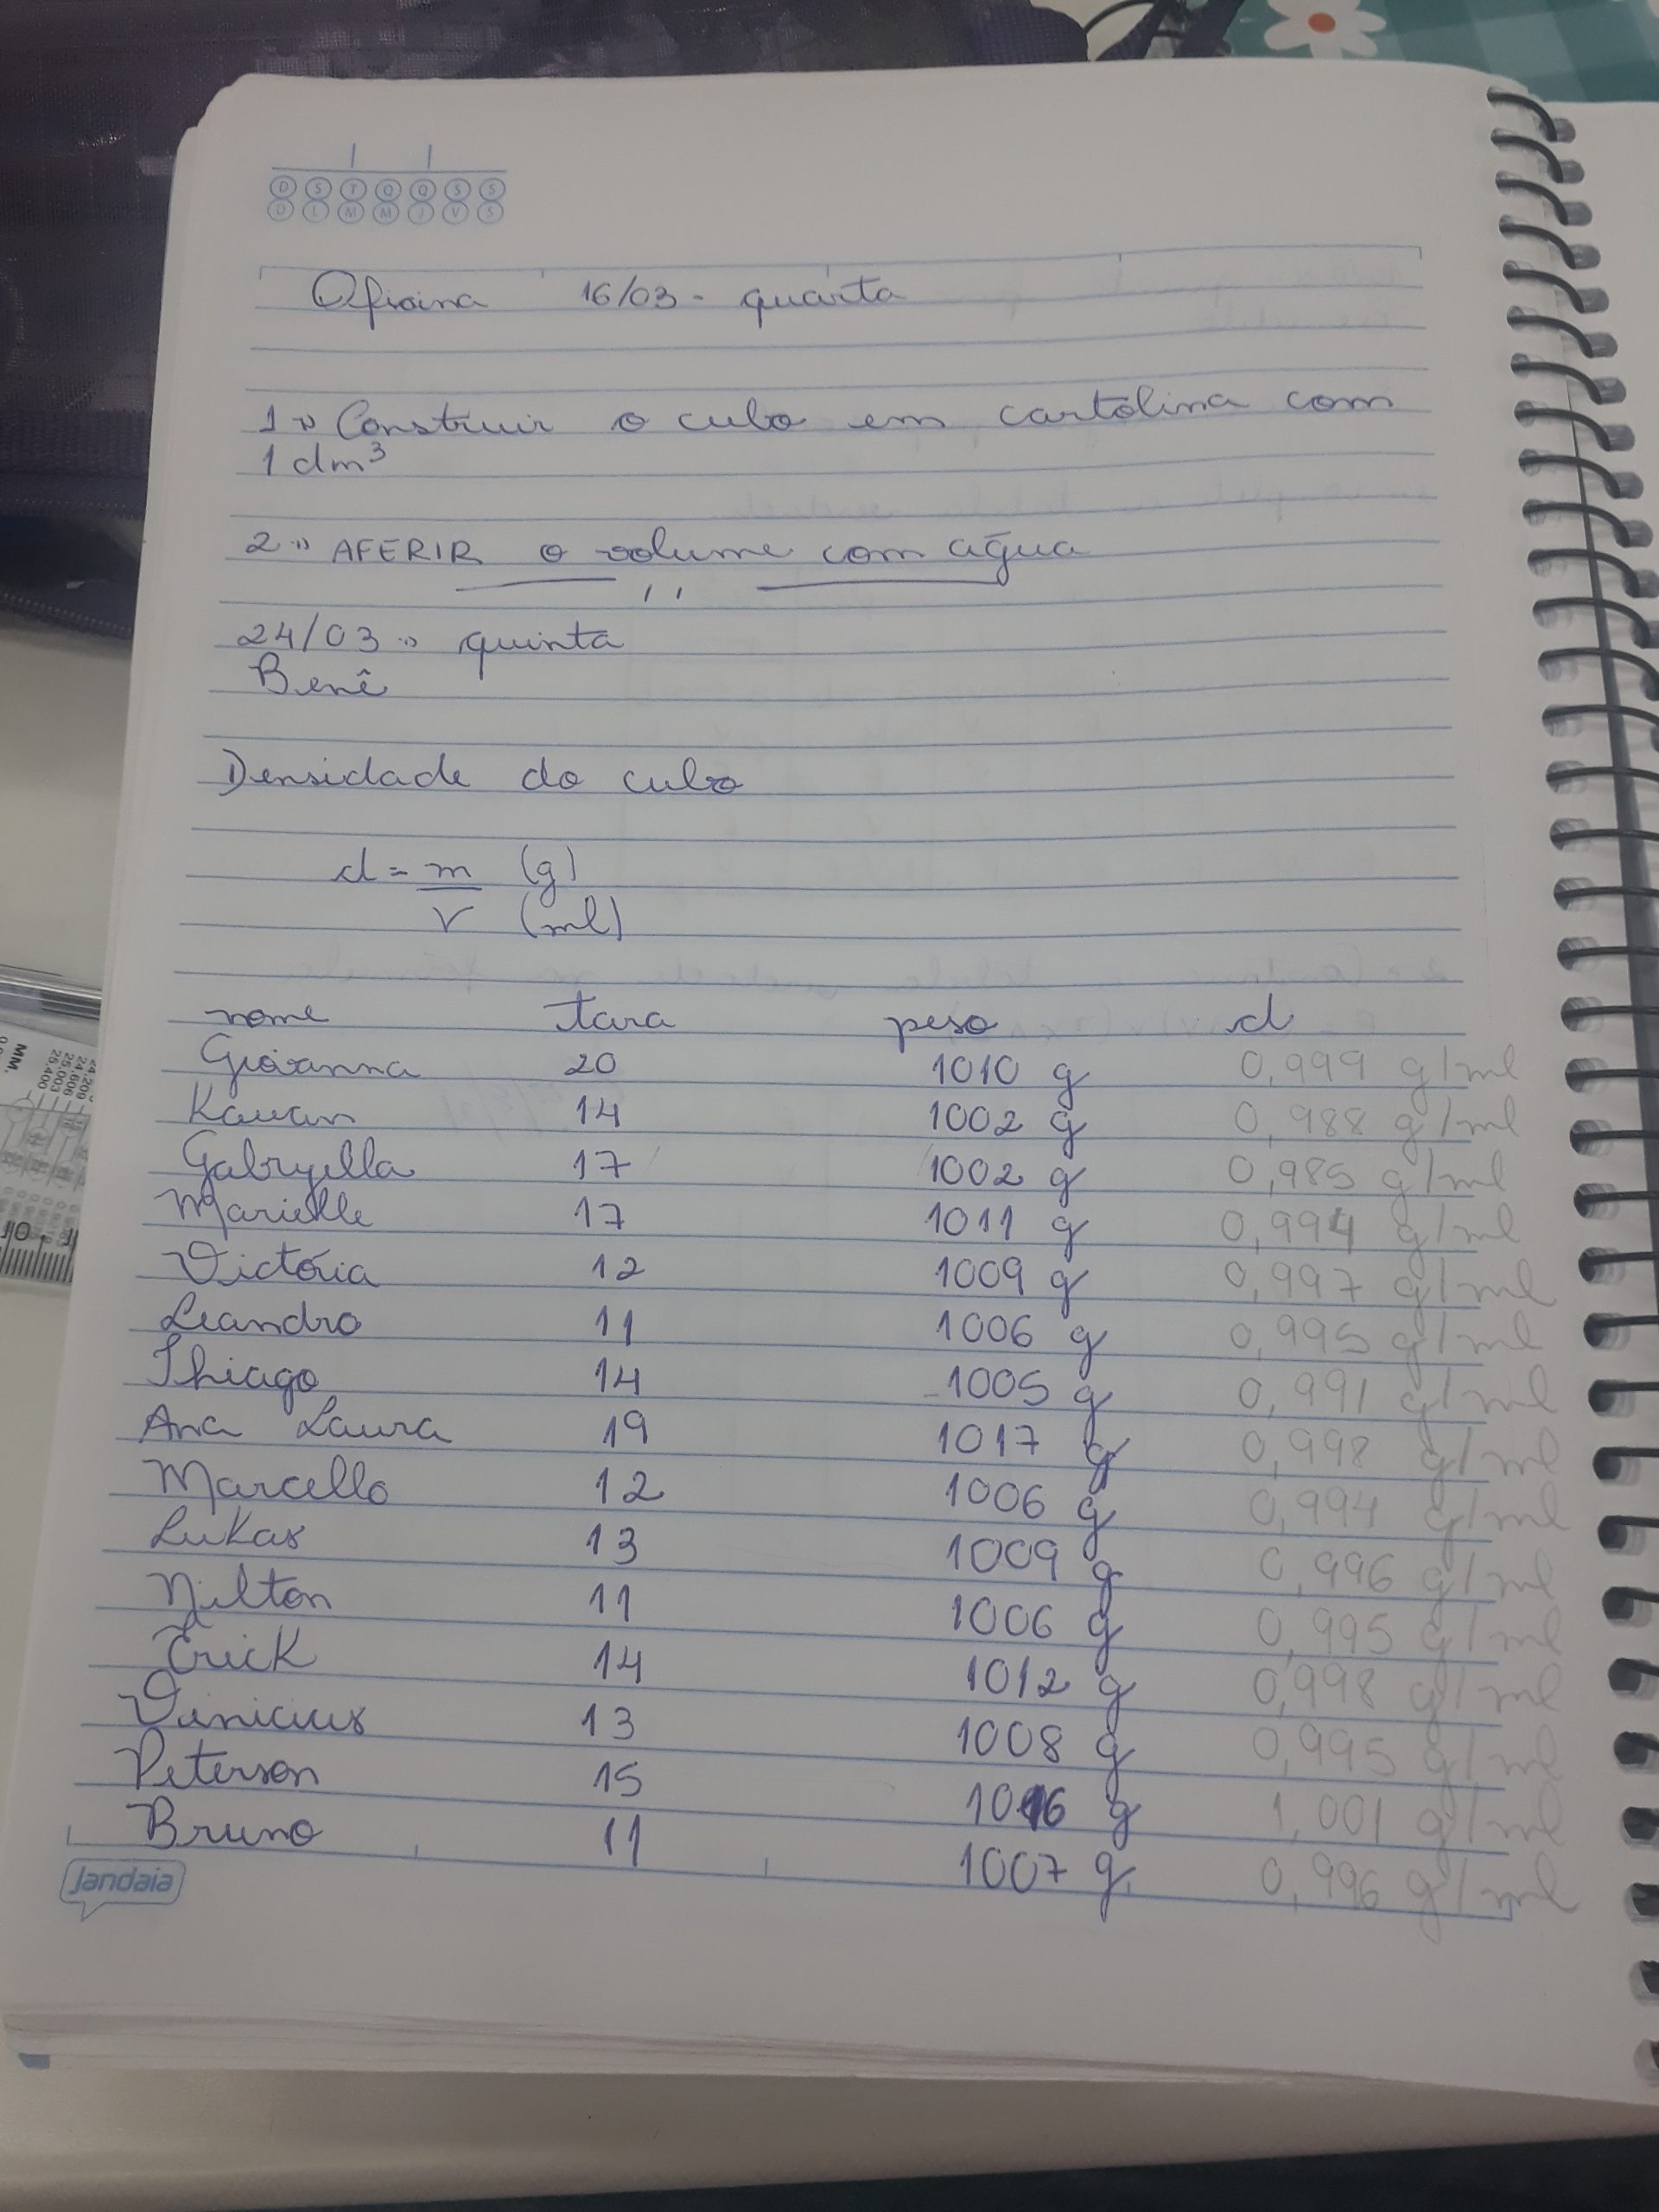 D S T Q Q S S
D L M M J V S
Oficina 16/03 - quarta
1 » Construir o cubo em cartolina com
1 dm³
2 » AFERIR o volume com água
24/03 » quinta
Benê
Densidade do cubo
d = m (g)
v (ml)
nome tara peso d
Giovanna 20 1010 g 0,999 g/ml
Kauan 14 1002 g 0,988 g/ml
Gabryella 17 1002 g 0,985 g/ml
Marielle 17 1011 g 0,994 g/ml
Victória 12 1009 g 0,997 g/ml
Leandro 11 1006 g 0,995 g/ml
Thiago 14 1005 g 0,991 g/ml
Ana Laura 19 1017 g 0,998 g/ml
Marcello 12 1006 g 0,994 g/ml
Lukas 13 1009 g 0,996 g/ml
Nilton 11 1006 g 0,995 g/ml
Erick 14 1012 g 0,998 g/ml
Vinicius 13 1008 g 0,995 g/ml
Peterson 15 1016 g 1,001 g/ml
Bruno 11 1007 g 0,996 g/ml
Jandaia
MM.
24.606
25.003
25.400